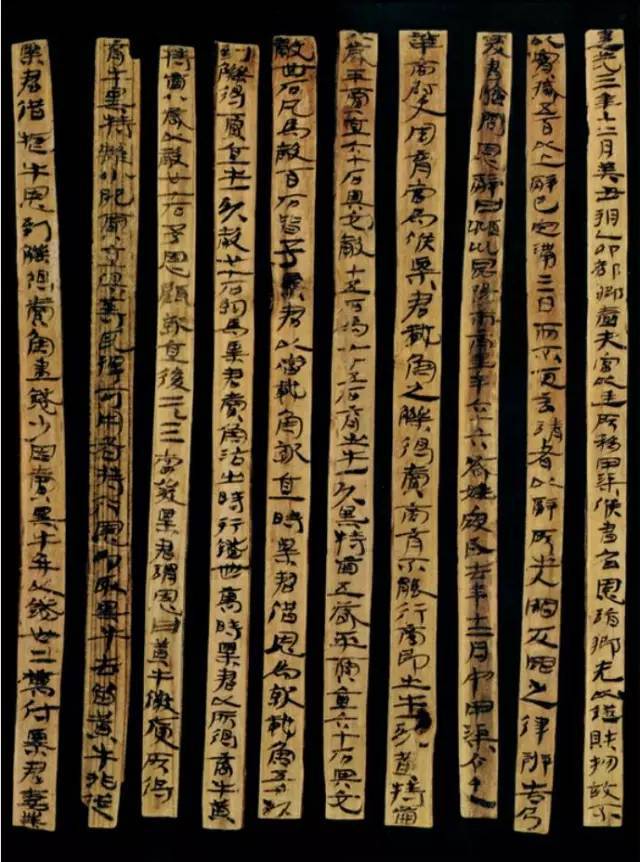 建武三年十二月癸丑朔乙卯都鄉嗇夫宮以廷所移甲渠候書召恩詣鄉先以證財物故不
以實臧五百以上辭已定滿三日而不更言請者以辭所出入罪反罪之律辨告乃
爰書驗問恩辭曰潁川昆陽市南里年六十六歲姓寇氏去年十二月中甲渠令史
華商尉史周育當為候粟君載魚之觻得賣商育不能行商即出牛一頭黃特齒
八歲平賈直六十石與它穀十五石為穀七十五石育出牛一頭黑特齒五歲平賈直六十石與它
穀卌石凡為穀百石皆予粟君以當載魚就直時粟君借恩為就載魚五千頭
到觻得賈直牛一頭穀廿七石約為粟君賣魚沽出時行錢卌萬時粟君以所得商牛黃
特齒八歲以穀廿七石予恩顧就直後二三當發粟君謂恩曰黃牛微庾所得
育牛黑特雖小肥賈直俱等耳擇可用者持行恩即取黑牛去留黃牛非從
粟君借牛恩到觻得賣魚盡錢少因賣黑牛并以錢卅二萬付粟君妻業